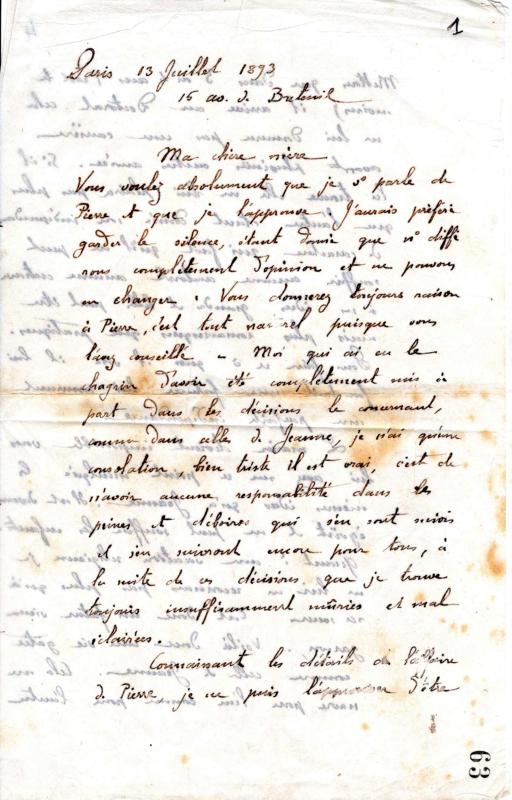 1
Paris 13 Juillet 1893
15 av. de Breteuil
Ma chère mère
Vous voulez absolument que je vs parle de
Pierre et que je l'approuve. J'aurais préféré
garder le silence, étant donné que ns diffé
rons complètement d'opinion et ne pouvons
en changer. Vous donnerez toujours raison
à Pierre, c'est tout naturel puisque vous
l'avez conseillé – Moi qui ai eu le
chagrin d'avoir été complètement mis à
part dans les décisions le concernant,
comme dans celles de Jeanne, je n'ai qu'une
consolation, bien triste il est vrai, c'est de
n'avoir aucune responsabilité dans les
peines et déboires qui s'en sont suivis
et s'en suivront encore pour tous, à
la suite de ces décisions que je trouve
toujours insuffisamment mûries et mal
éclairées.
Connaissant les détails de l'affaire
de Pierre je ne puis l'approuver d'être
63